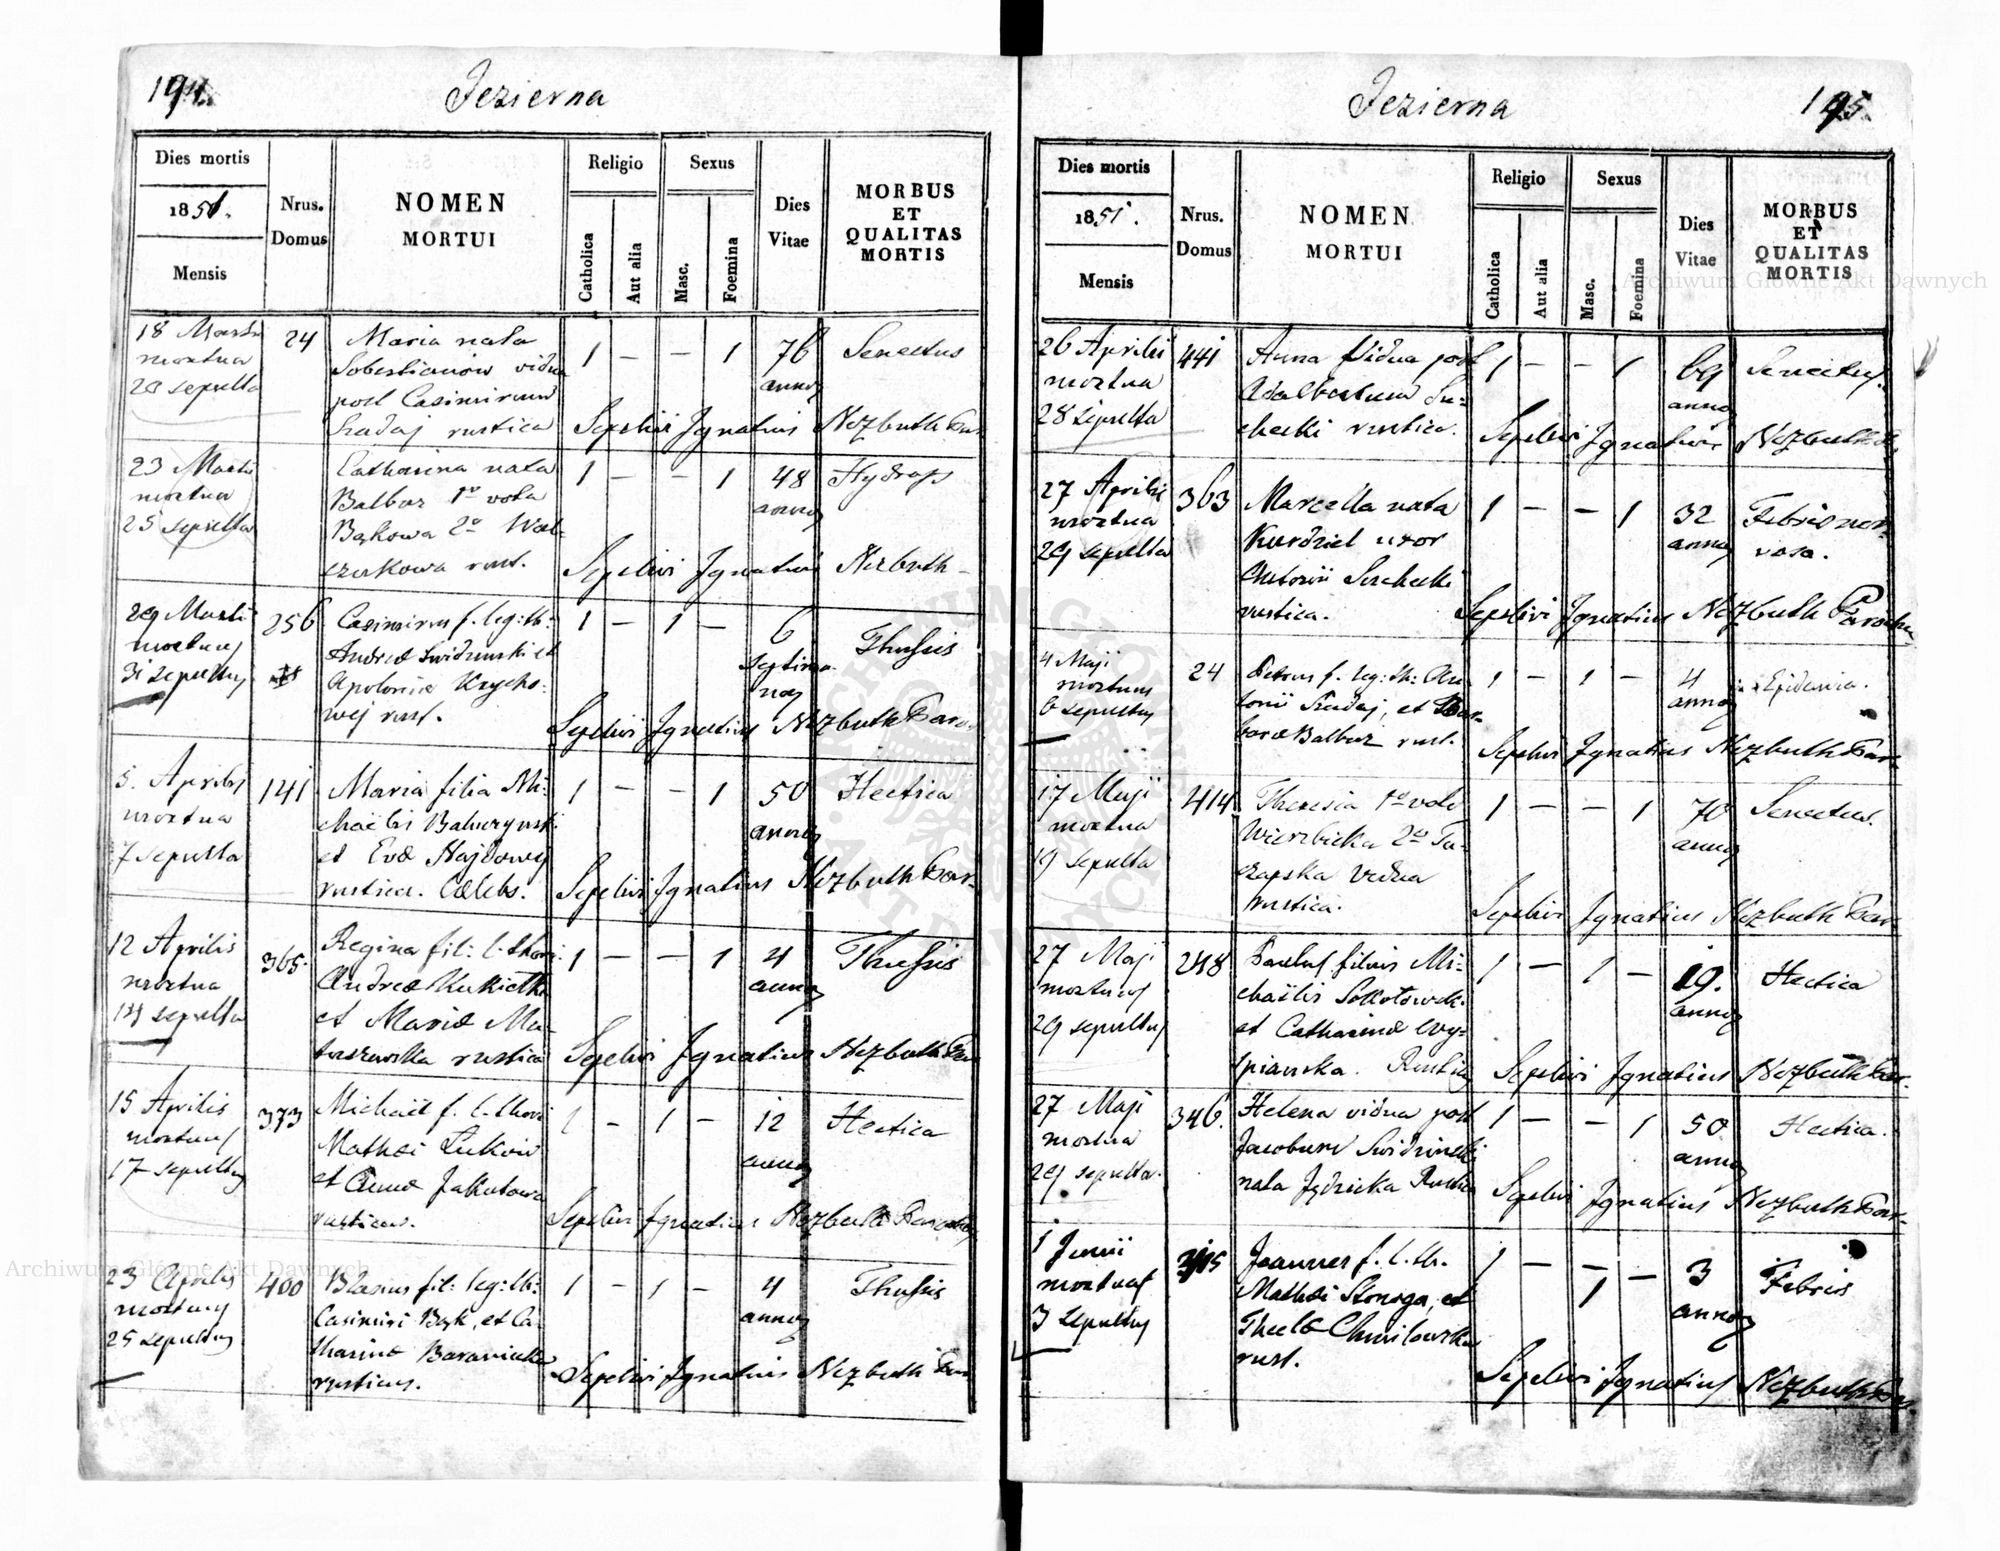 194.
Jezierna
Dies mortis
1851.
Mensis
Nrus.
Domus
NOMEN
MORTUI
Religio
Catholica
Aut alia
Sexus
Masc.
Foemina
Dies
Vitae
MORBUS
ET
QUALITAS
MORTIS
18 Martii
mortua
20 sepulta
24
Maria nata
vidua
post Casimirum
Sradaj rustica
1 — — 1
76
annor
Senectus
Sepelivi Ignatius Nezbuth Par.
23 Martii
mortua
25 sepulta
Catharina nata
Balbuz 1º voto
Bąkowa 2º Wal-
czakowa rust.
1 — — 1
48
annor
Hydrops
Sepelivi Ignatius Nezbuth
29 Martii
mortuus
31 sepultus
256
Casimirus f. leg: th:
Andreæ Swidzinski et
Apoloniæ
rust.
1 — 1 —
6
septima
nar
Thussis
Sepelivi Ignatius Nezbuth Paro
5. Aprilis
mortua
7 sepulta
141
Maria filia Mi-
chaëlis
et Evæ Najdowej
rustica. Cælebs.
1 — — 1
50
annor
Hectica
Sepelivi Ignatius Nezbuth Par.
12 Aprilis
mortua
14 sepulta
365.
Regina fil: l. thori
Andreæ Kukiełka
et Mariæ Ma-
tuszewska rustica
1 — — 1
4
annor
Thussis
Sepelivi Ignatius Nezbuth Par
15 Aprilis
mortuus
17 sepultus
373
Michaël f. l. thori
Mathæi Lukow
et Annæ Jakutowa
rusticus.
1 — 1 —
12
annor
Hectica
Sepelivi Ignatius Nezbuth Parochus
23 Aprilis
mortuus
25 sepultus
400
Blasius fil: leg: th:
Casimiri Bąk, et Ca-
tharinæ Baraniecka
rusticus.
1 — 1 —
4
annor
Thussis
Sepelivi Ignatius Nezbuth Par
Jezierna
195.
Dies mortis
1851.
Mensis
Nrus.
Domus
NOMEN
MORTUI
Religio
Catholica
Aut alia
Sexus
Masc.
Foemina
Dies
Vitae
MORBUS
ET
QUALITAS
MORTIS
26 Aprilis
mortua
28 sepulta
441
Anna vidua post
Adalbertum Su-
checki rustica.
1 — — 1
69
annor
Senectus.
Sepelivi Ignatius Nezbuth
27 Aprilis
mortua
29 sepulta
363
Marcella nata
Kurdziel uxor
Antonii Suchecki
rustica.
1 — — 1
32
annor
Febris ner-
vosa.
Sepelivi Ignatius Nezbuth Parochus
4 Maji
mortuus
6 sepultus
24
Petrus f. leg: th: An-
tonii Sradaj, et Bar-
baræ Balbuz rust.
1 — 1 —
4
annor
Epidemia.
Sepelivi Ignatius Nezbuth Par.
17 Maji
mortua
19 sepulta
414
Theresia 1º voto
Wierzbicka 2º Tu-
czapska vidua
rustica.
1 — — 1
70
annor
Senectus.
Sepelivi Ignatius Nezbuth Par.
27 Maji
mortuus
29 sepultus
248
Paulus filius Mi-
chaëlis Sokołowski
et Catharinæ Wy-
spianska. Rusticus
1 — 1 —
19.
annor
Hectica
Sepelivi Ignatius Nezbuth Par.
27 Maji
mortua
29 sepulta.
346.
Helena vidua post
Jacobum Swidzinski
nata Jędzicka Rustica
1 — — 1
50
annor
Hectica.
Sepelivi Ignatius Nezbuth Par.
1 Junii
mortuus
3 sepultus
Joannes f. l. th.
Mathæi Stonoga, et
Theclæ Chmilowska
rust.
1 — 1 —
3
annor
Febris
Sepelivi Ignatius Nezbuth Par.
Archiwum Główne Akt Dawnych
Archiwum Główne Akt Dawnych